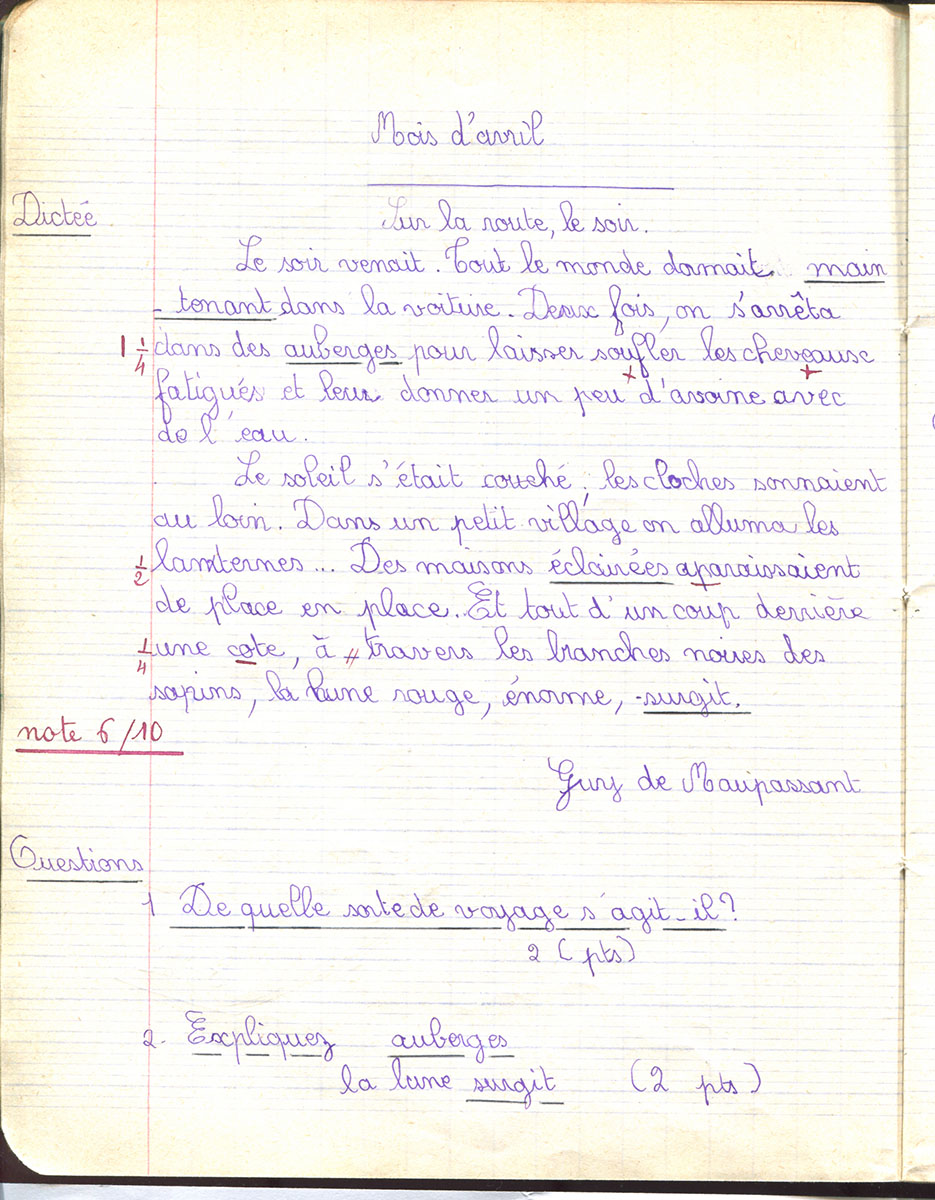 Mois d'avril
Dictée
Sur la route, le soir.
Le soir venait. Tout le monde domait main
- tenant dans la voiture. Deux fois, on s'arrêta
1 1/4 dans des auberges pour laisser soufler les cheveaux
fatigués et leur donner un peu d'avoine avec
de l'eau.
Le soleil s'était couché ; les cloches sonnaient
au loin. Dans un petit village on alluma les
1/2 lanternes... Des maisons éclairées aparaissaient
de place en place. Et tout d'un coup derrière
1/4 une cote, à travers les branches noires des
sapins, la lune rouge, énorme, surgit.
note 6/10
Guy de Maupassant
Questions
1 De quelle sorte de voyage s'agit-il ?
2 (pts)
2. Expliquez auberges
la lune surgit (2 pts)